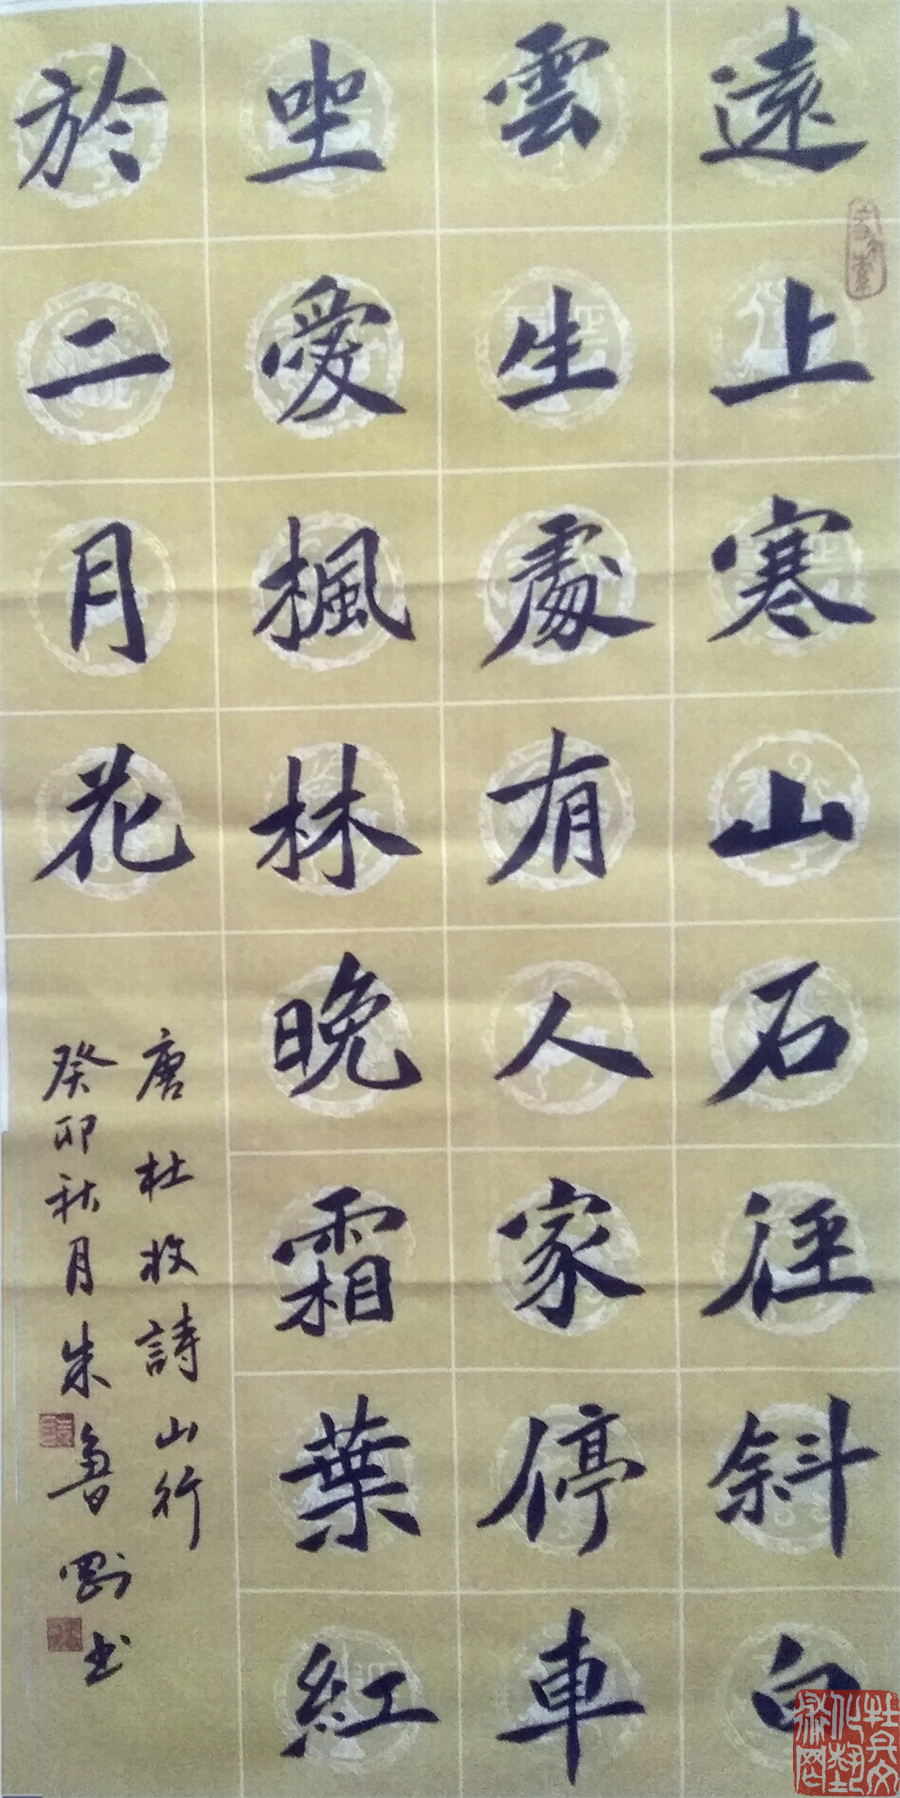 遠上寒山石徑斜白
雲生處有人家停車
坐愛楓林晚霜葉紅
於二月花
唐杜牧詩山行
癸卯秋月朱魯剛书